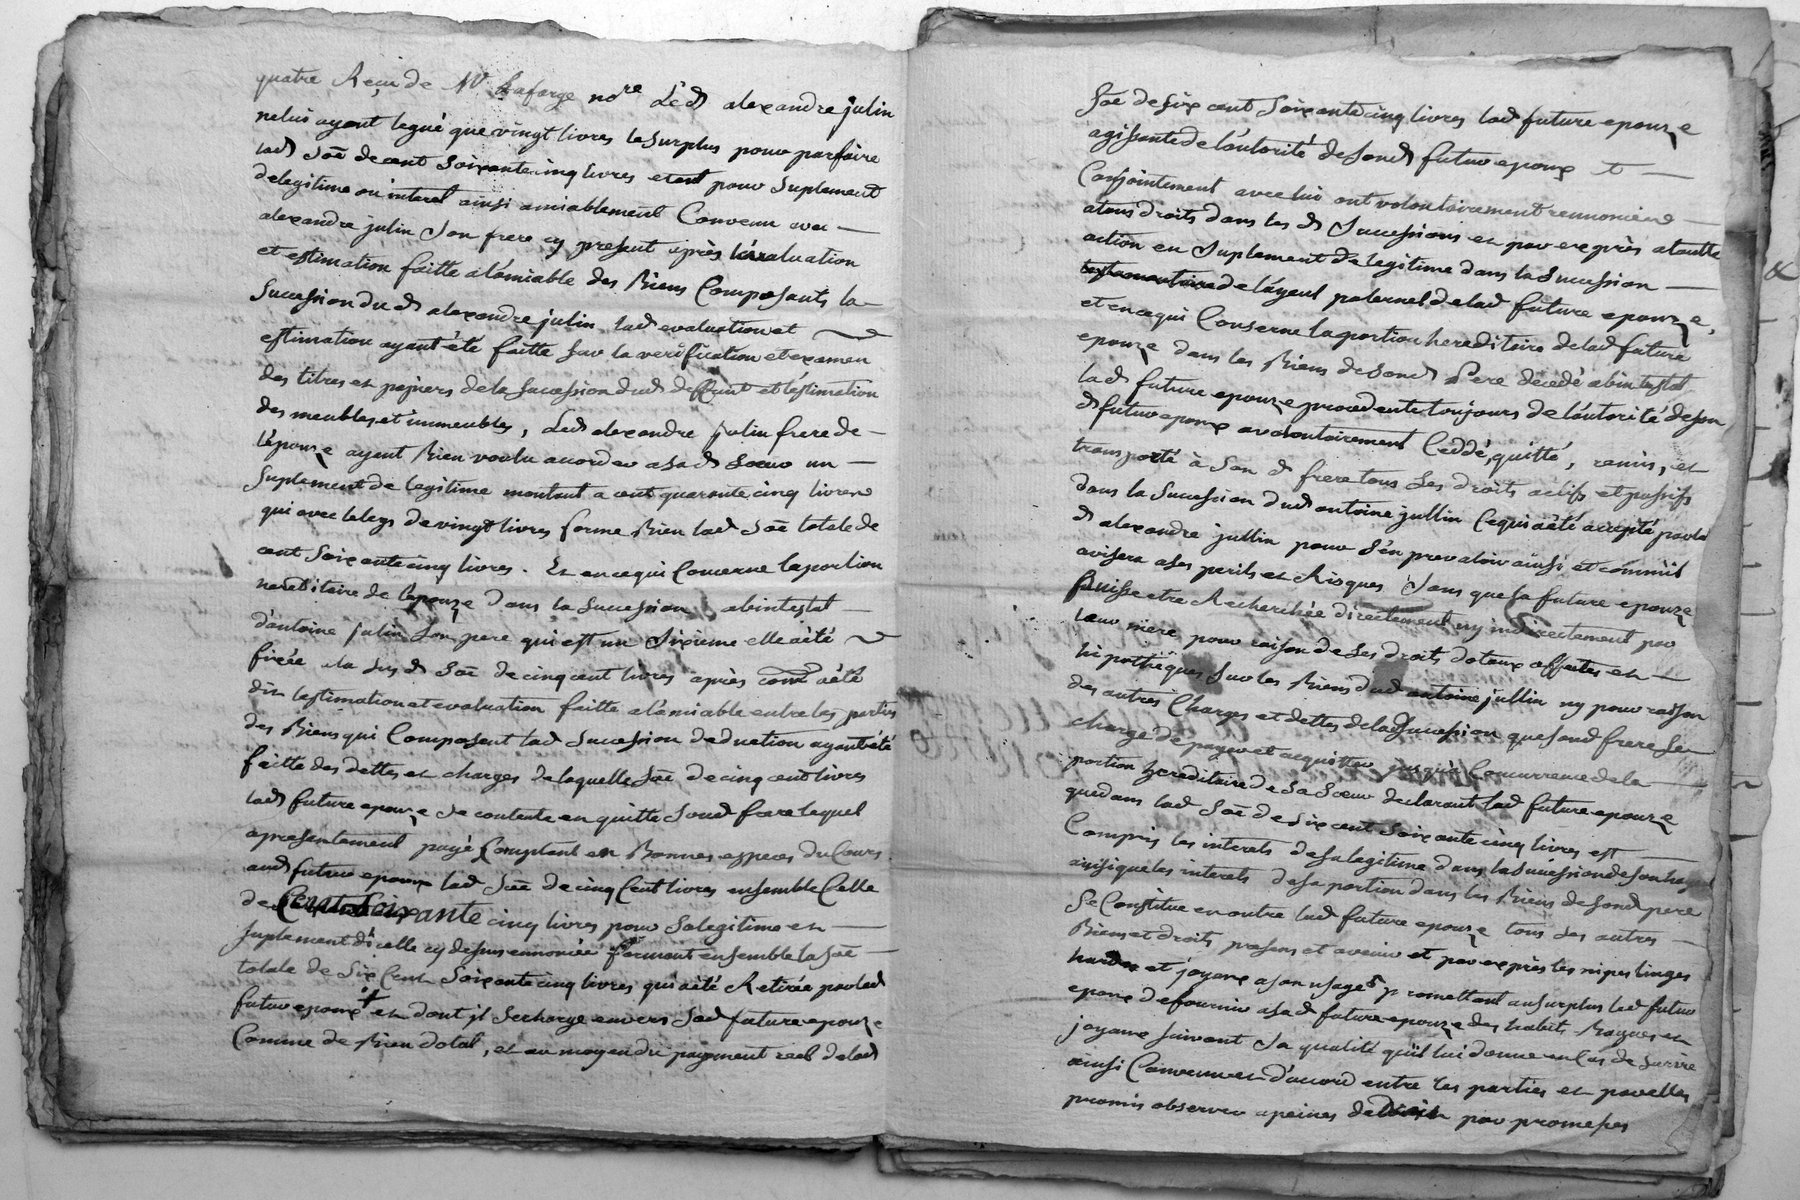 quatre Reçu de Mr Lafarge nore Led alexandre julin
neluy ayent legué que vingt livres le surplus pour parfaire
lad Soe de cent soixante cinq livres etant pour suplement
de legitime ou interet ainsi amiablement Convenu avec
alexandre julin son frere cy present après lévaluation
et estimation faitte alámiable des Biens Composants la
Sucession dud alexandre julin, lad evaluation et
estimation ayant été faitte sur la verification et examen
des titres et papiers de la Sucession dud deffunt et léstimation
des meubles et immeubles, Led alexandre julin frere de
lépouze ayent Bien voulu accorder asad soeur un
Suplement de legitime montant a cent quarante cinq livres
qui avec le legs de vingt livres forme Bien lad Soe totale de
cent soixante cinq livres. Et en cequi Concerne la portion
hereditaire de lepouze dans la succession abintestat
dántoine julin Son pere qui est un Sixieme elle aété
fixée ala susd Soe de cinq cent livres après comme aété
dit lestimation et evaluation faitte alámiable entre les parties
des Biens qui Composent lad Sucession deduction ayant été
faitte des dettes et charges de laquelle Soe de cinq cent livres
lad future epouze se contente en quitte Sond frere lequel
apresentement payé Comptant en Bonnes especes du Cours
aud futur epoux lad Soe de cinq Cent livres ensemble Celle
de Cent Soixante cinq livres pour sa legitime et
suplement dicelle cy dessus ennoncée formant ensemble la Soe
totale de Six Cent Soixante cinq livres qui aété Retirée par led
futur epoux + et dont jl secharge envers Sad future epouze
Comme de Bien dotal, et au moyen du payement reel de lad
Soe de six cent soixante cinq livres lad future epouze
agissante de láutorité de Sond futur epoux et
Conjointement avec lui ont volontairement rennoncé
atous droits dans les d Sucessions et par exprès atoutte
action en Suplement de legitime dans la Sucession
de láyeul paternel de lad future epouze,
et en cequi Conserne la portion hereditaire de lad future
epouze dans les Biens de Sond Pere décédé abintestat
lad future epouze procedente toujours de láutorité de son
d futur epoux a volontairement Ceddé, quitté, remis, et
transporté à Son d frere tous Ses droits actifs et passifs
dans la Sucession dud antoine jullin Cequi aété accepté par led
d alexandre jullin pour s'en prevaloir ainsi et comme il
avisera a ses perils et Risques Sans que la future epouze
puisse etre Recherchée directement ny indirectement par
leur mere pour raison de Ses droits dotaux affectés et
hipothéqués Sur les Biens dud antoine jullin ny pour raison
des autres Charges et dettes de lad Sucession que Sond frere Se
charge de payer et acquitter jusqu'à Concurrence de la
portion hereditaire de Sa Soeur declarant lad future epouze
que dans lad Soe de Six cent Soixante cinq livres est
Compris les interets de sa legitime dans la Sucession de son
ainsi que les interets de sa portion dans les Biens de Sond pere
Se Constitue en outre lad future epouze tous Ses autres
Biens et droits presens et avenir et par exprès les nipes linges
hardes et joyaux a son usage promettant au surplus led futur
epoux de fournir asad future epouze des habits Bagues et
joyaux suivant Sa qualité quil lui donne en Cas de Survie
ainsi Convenu et d'accord entre les parties et par elles
promis observer apeines de Droit par promesses